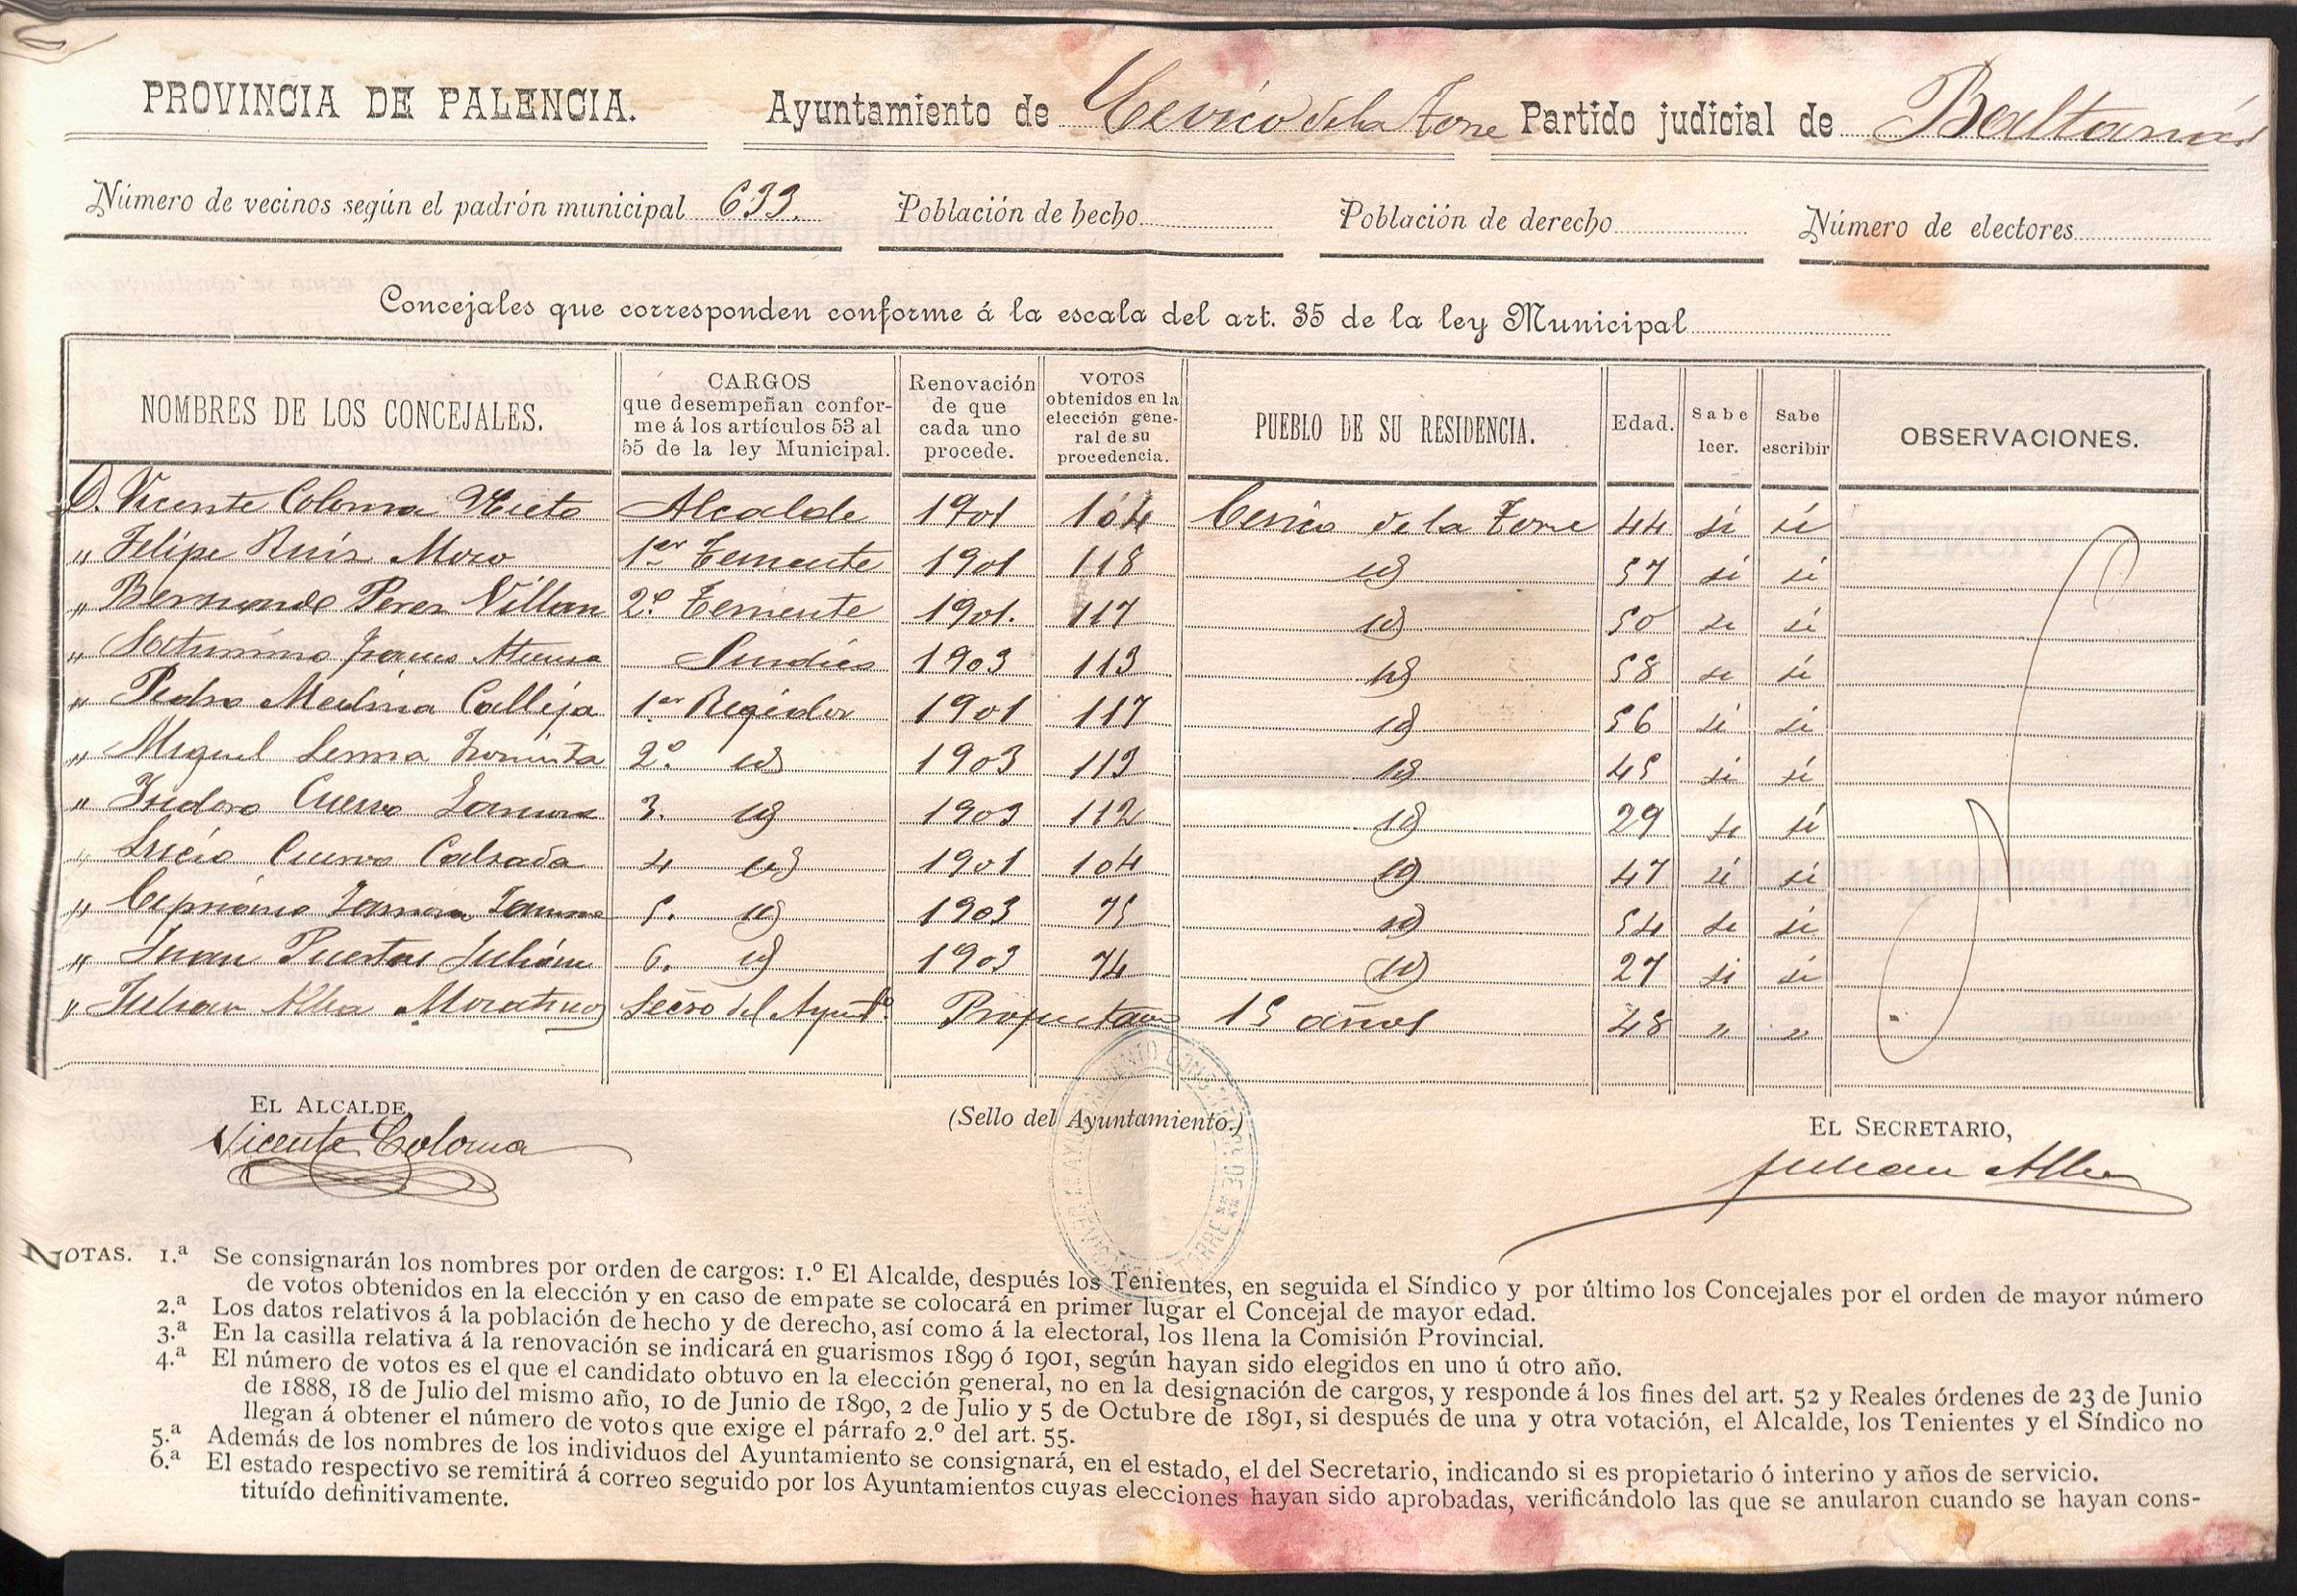 PROVINCIA DE PALENCIA. Ayuntamiento de Cevico de la Torre Partido judicial de Baltanás
Número de vecinos según el padrón municipal 633. Población de hecho Población de derecho Número de electores
Concejales que corresponden conforme á la escala del art. 35 de la ley Municipal
NOMBRES DE LOS CONCEJALES. CARGOS que desempeñan confor- me á los artículos 53 al 55 de la ley Municipal. Renovación de que cada uno procede. VOTOS obtenidos en la elección gene- ral de su procedencia. PUEBLO DE SU RESIDENCIA. Edad. Sabe leer. Sabe escribir OBSERVACIONES.
D. Vicente Coloma Nieto Alcalde 1901 104 Cevico de la Torre 44 si si
" Felipe Ruiz Moro 1er Teniente 1901 118 id 57 si si
" Bernardo Perez Villan 2º Teniente 1901. 117 id 50 si si
" Saturnino Sindico 1903 113 id 58 si si
" Pedro Medina Calleja 1er Regidor 1901 117 id 56 si si
" Miguel Lerma 2º. id 1903 113 id 45 si si
" Isidoro Cuervo Zamora 3. id 1903 112 id 29 si si
" Lucio Cuervo Calzada 4 id 1901 104 id 47 si si
" Cipriano Zamora Zamora 5. id 1903 75 id 54 si si
" Juan Puertas Julián 6. id 1903 74 id 27 si si
" Julian Alba Moratinos Secro del Ayunto. Propietario 15 años 48 " "
EL ALCALDE, (Sello del Ayuntamiento.) EL SECRETARIO,
Vicente Coloma Julian Alba
NOTAS. 1.ª Se consignarán los nombres por orden de cargos: 1.º El Alcalde, después los Tenientes, en seguida el Síndico y por último los Concejales por el orden de mayor número
de votos obtenidos en la elección y en caso de empate se colocará en primer lugar el Concejal de mayor edad.
2.ª Los datos relativos á la población de hecho y de derecho, así como á la electoral, los llena la Comisión Provincial.
3.ª En la casilla relativa á la renovación se indicará en guarismos 1899 ó 1901, según hayan sido elegidos en uno ú otro año.
4.ª El número de votos es el que el candidato obtuvo en la elección general, no en la designación de cargos, y responde á los fines del art. 52 y Reales órdenes de 23 de Junio
de 1888, 18 de Julio del mismo año, 10 de Junio de 1890, 2 de Julio y 5 de Octubre de 1891, si después de una y otra votación, el Alcalde, los Tenientes y el Síndico no
llegan á obtener el número de votos que exige el párrafo 2.º del art. 55.
5.ª Además de los nombres de los individuos del Ayuntamiento se consignará, en el estado, el del Secretario, indicando si es propietario ó interino y años de servicio.
6.ª El estado respectivo se remitirá á correo seguido por los Ayuntamientos cuyas elecciones hayan sido aprobadas, verificándolo las que se anularon cuando se hayan cons-
tituído definitivamente.